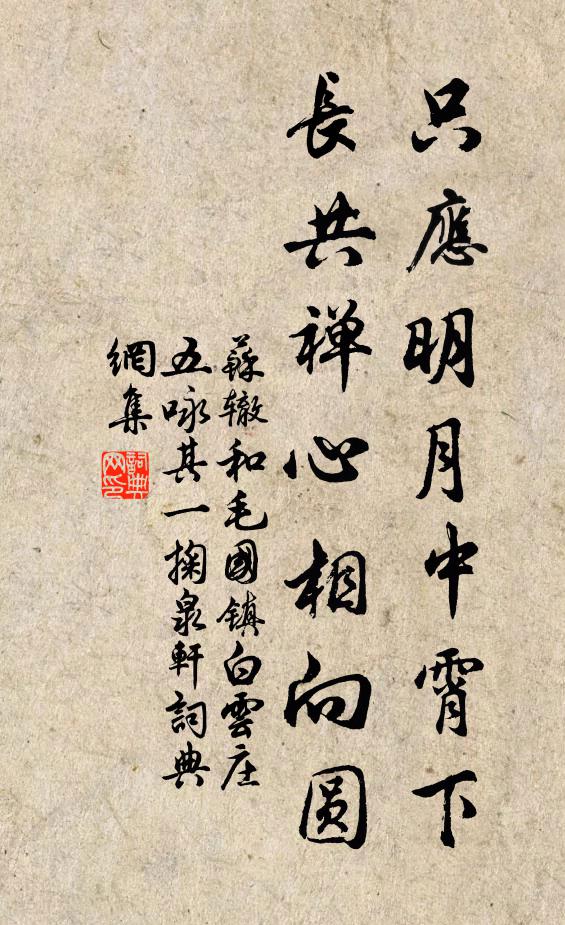 只應明月中霄下
長共禅心相向圆
蘇辙和毛國鎮白雲庄
五咏其一掬泉軒詞典
網集
詞典
网印